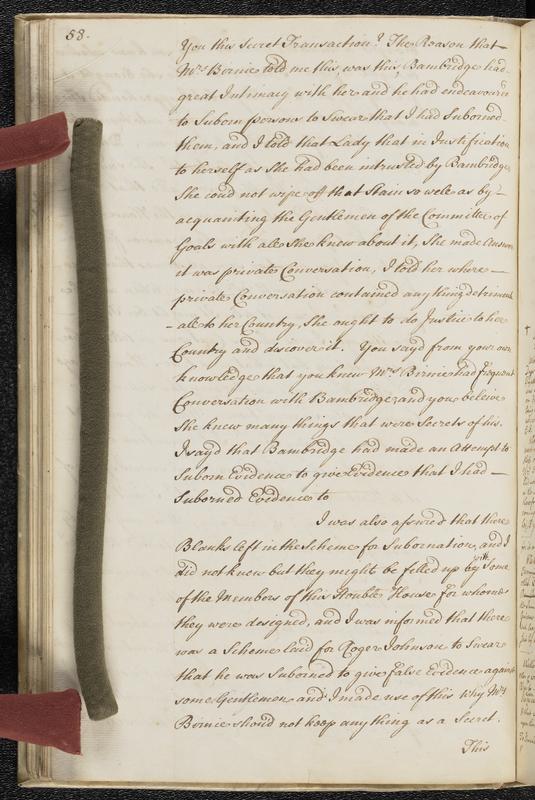 58.
You this Secret Transaction? The Reason that
Mrs Birnie told me this, was this, Bambridge had
great Intimacy with her and he had endeavour'd
to Suborn persons to Swear that I had Suborned
them, and I told that Lady that in Justification
to herself as She had been intrusted by Bambridge
She coud not wipe off that Stain so well as by
acquainting the Gentlemen of the Committee of
Goals with all She knew about it, She made Answer
it was private Conversation, I told her where
private Conversation contained any thing detriment
-all to her Country, She ought to do Justice to her
Country and discover it. You sayd from your own
knowledge that you knew Mrs Birnie had frequent
Conversation with Bambridge and you beleive
She knew many things that were Secrets of his.
I sayd that Bambridge had made an Attempt to
Suborn Evidence to give Evidence that I had
Suborned Evidence to
I was also assured that there
Blanks left in the Scheme for Subornation, and I
did not know but they might be filled up by with Some
of the Members of this Noble House for whome
they were designed, and I was informed that there
was a Scheme laid for Roger Johnson to Swear
that he was Suborned to give false Evidence against
some Gentlemen and I made use of this Why Mrs
Birnie shoud not keep any thing as a Secret.
This